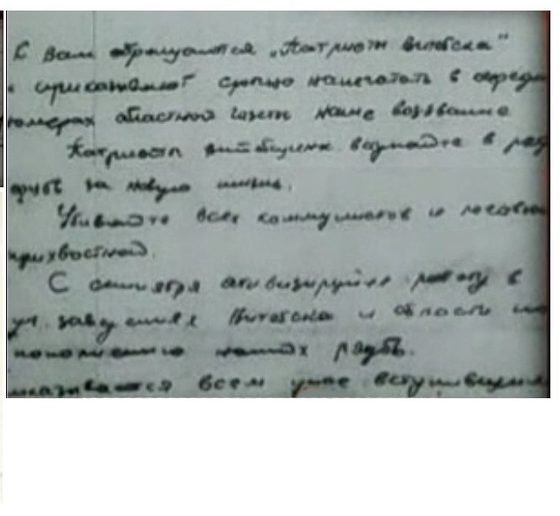 К Вам обращаются „Патриоты Витебска"
приказывают срочно напечатать в очеред
номерах областной газеты наше воззвание
Патриоты витебщины вступайте в ряд
за новую жизнь.
Убивайте всех коммунистов и
прихвостней.
С сентября активизируйте работу в
уч. заведениях Витебска и области по
пополнению наших рядов.
всем уже вступившим